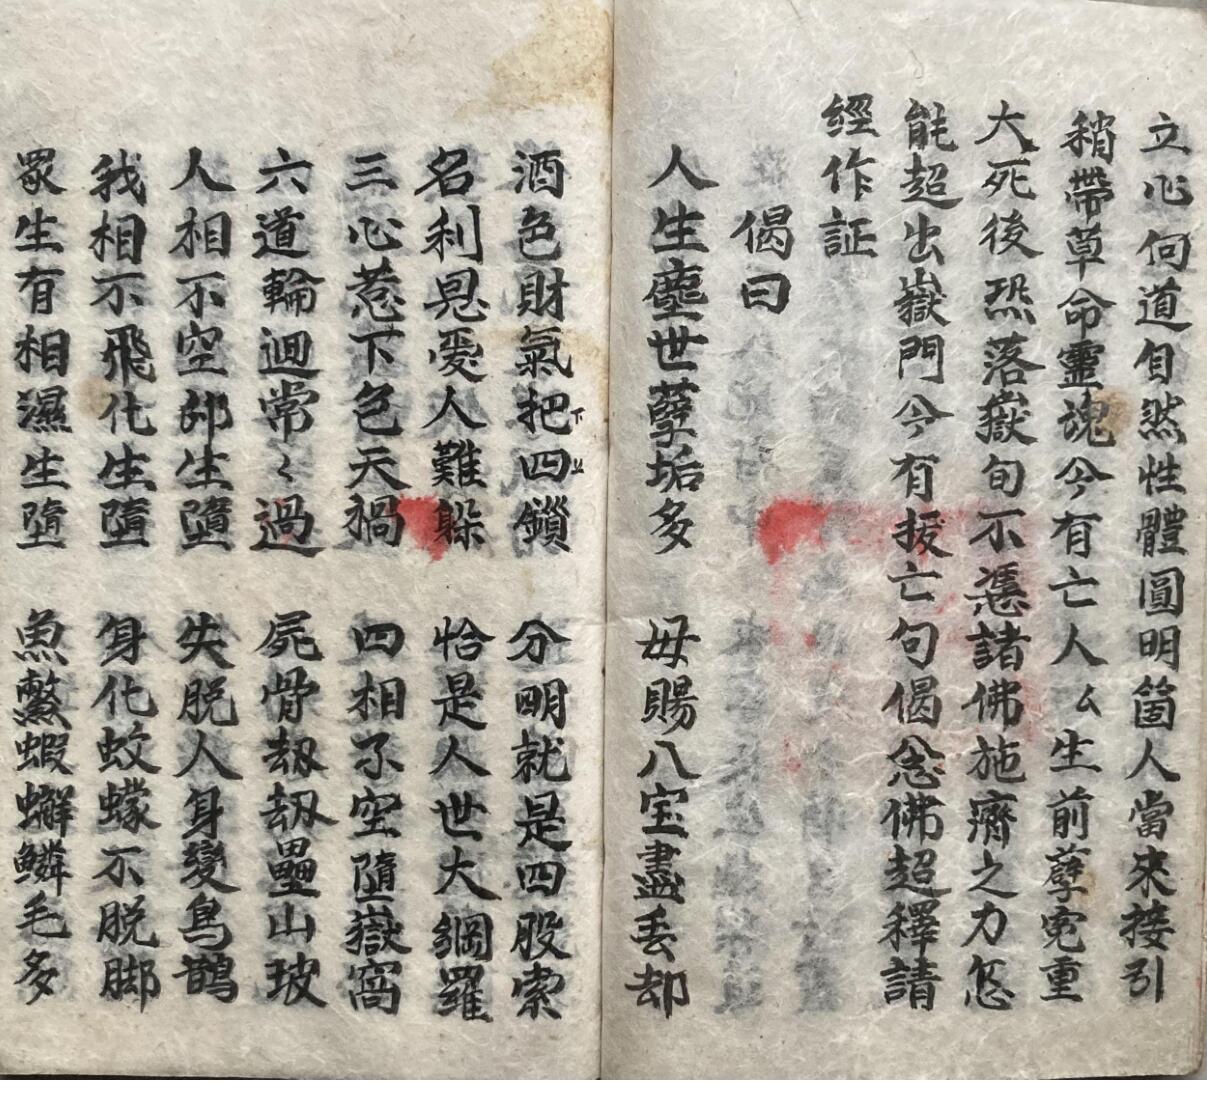 立心向道自然性體圓明箇人當來接引
稍帶草命靈魂今有亡人厶生前孽寃重
大死後恐落嶽旬不憑諸佛施濟之力怎
能超出嶽門今有拔亡句偈念佛超釋請
經作証
偈曰
人生塵世孽垢多 母賜八宝盡丢却
酒色財氣把四鎖 分明就是四股索
名利恩愛人難躲 恰是人世大綱羅
三心惹下色天禍 四相不空墮嶽窩
六道輪迴常々過 屍骨刼刼壘山坡
人相不空卵生墮 失脱人身變鳥鵲
我相不飛化生墮 身化蚊蠓不脱脚
眾生有相濕生墮 魚鱉蝦蠏鱗毛多